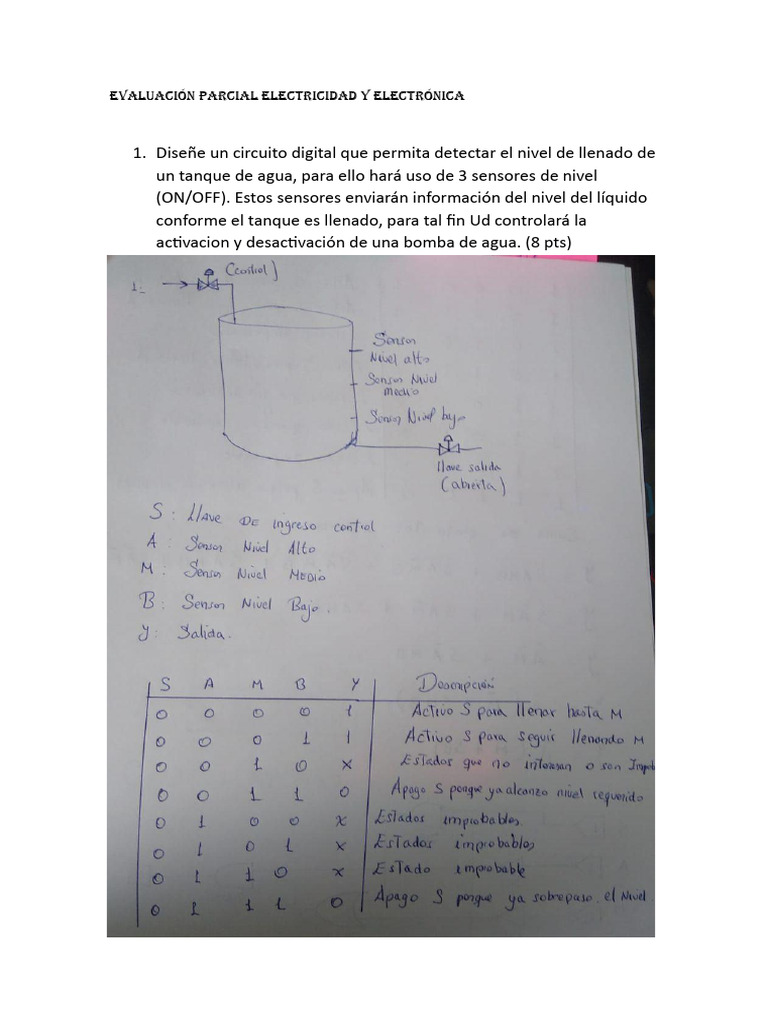 EVALUACIÓN PARCIAL ELECTRICIDAD Y ELECTRÓNICA
1. Diseñe un circuito digital que permita detectar el nivel de llenado de
un tanque de agua, para ello hará uso de 3 sensores de nivel
(ON/OFF). Estos sensores enviarán información del nivel del líquido
conforme el tanque es llenado, para tal fin Ud controlará la
activacion y desactivación de una bomba de agua. (8 pts)
(control)
1._
Sensor
Nivel alto
Sensor Nivel
medio
Sensor Nivel bajo
llave salida
(abierta)
S : LLAVE DE ingreso control
A : Sensor Nivel Alto
M : Sensor Nivel MEDIO
B : Sensor Nivel Bajo.
Y : Salida.
S A M B Y Descripción
0 0 0 0 1 Activo S para llenar hasta M
0 0 0 1 1 Activo S para seguir llenando M
0 0 1 0 x Estados que no interesan o son
0 0 1 1 0 Apago S porque ya alcanzo nivel requerido
0 1 0 0 x Estados improbables.
0 1 0 1 x Estados improbables
0 1 1 0 x Estado improbable
0 1 1 1 0 Apago S porque ya sobrepaso el Nivel.